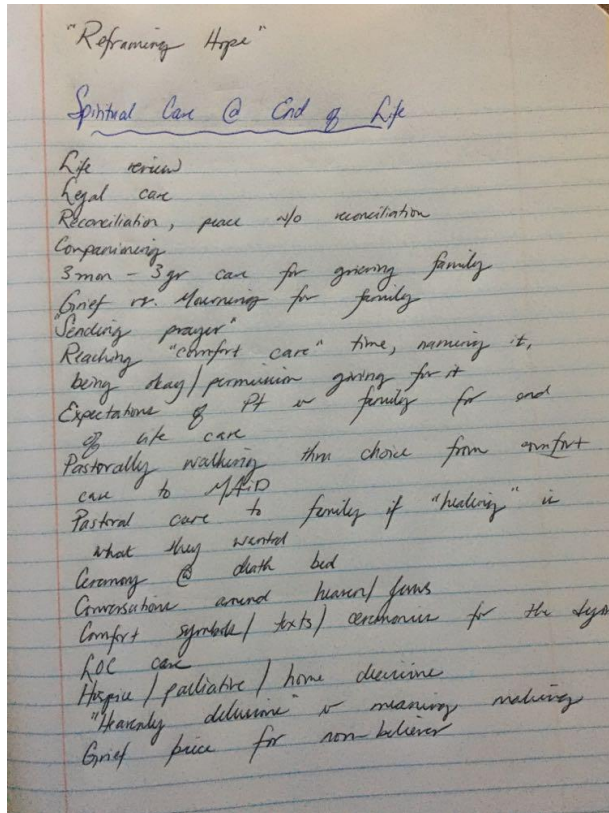 "Reframing Hope"
Spiritual Care @ End of Life
Life review
Legal care
Reconciliation, peace w/o reconciliation
Companioning
3 mon - 3 yr care for grieving family
Grief vs. Mourning for family
"Sending prayer"
Reaching "comfort care" time, naming it,
being okay/permission giving for it
Expectations of Pt w family for end
of life care
Pastorally walking thru choice from comfort
care to MAiD
Pastoral care to family if "healing" is
what they wanted
Ceremony @ death bed
Conversations around heaven/
Comfort symbols/texts/ceremonies for the
LOC care
Hospice/palliative/home decisions
"Heavenly" w meaning making
Grief piece for non-believer